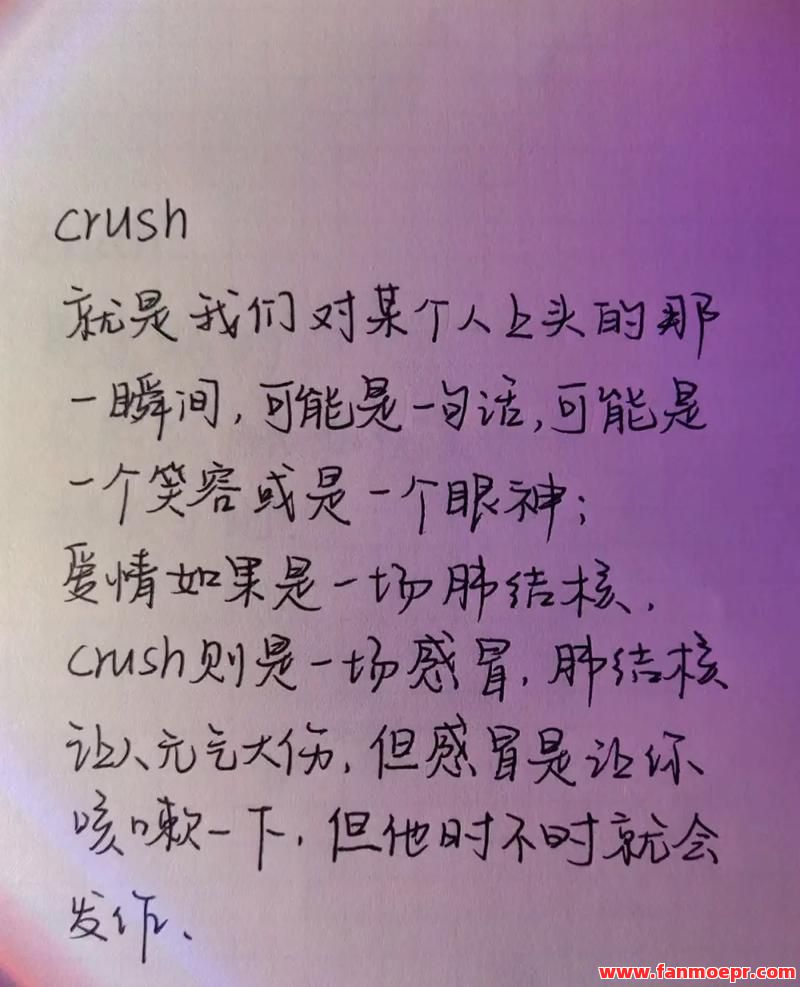 crush
就是我们对某个人上头的那
一瞬间,可能是一句话,可能是
一个笑容或是一个眼神;
爱情如果是一场肺结核.
crush则是一场感冒.肺结核
让人元气大伤,但感冒是让你
咳嗽一下.但他时不时就会
发作、
www.fanmoepr.com